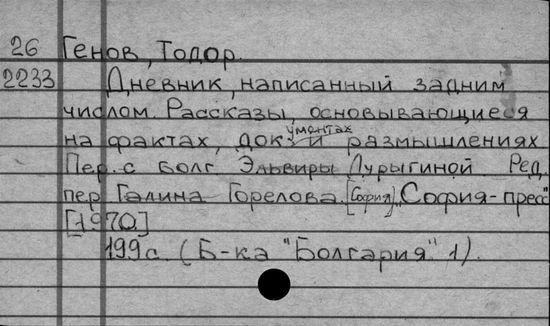 26 Генов, Тодор.
2233 Дневник, написанный задним
числом. Рассказы, основывающиеся
на фактах, документах и размышлениях
Пер. с болг. Эльвиры Дурыгиной. Ред.
пер. Галина Горелова. [София], "София-пресс"
[1970.]
199 с. (Б-ка "Болгария". 1).